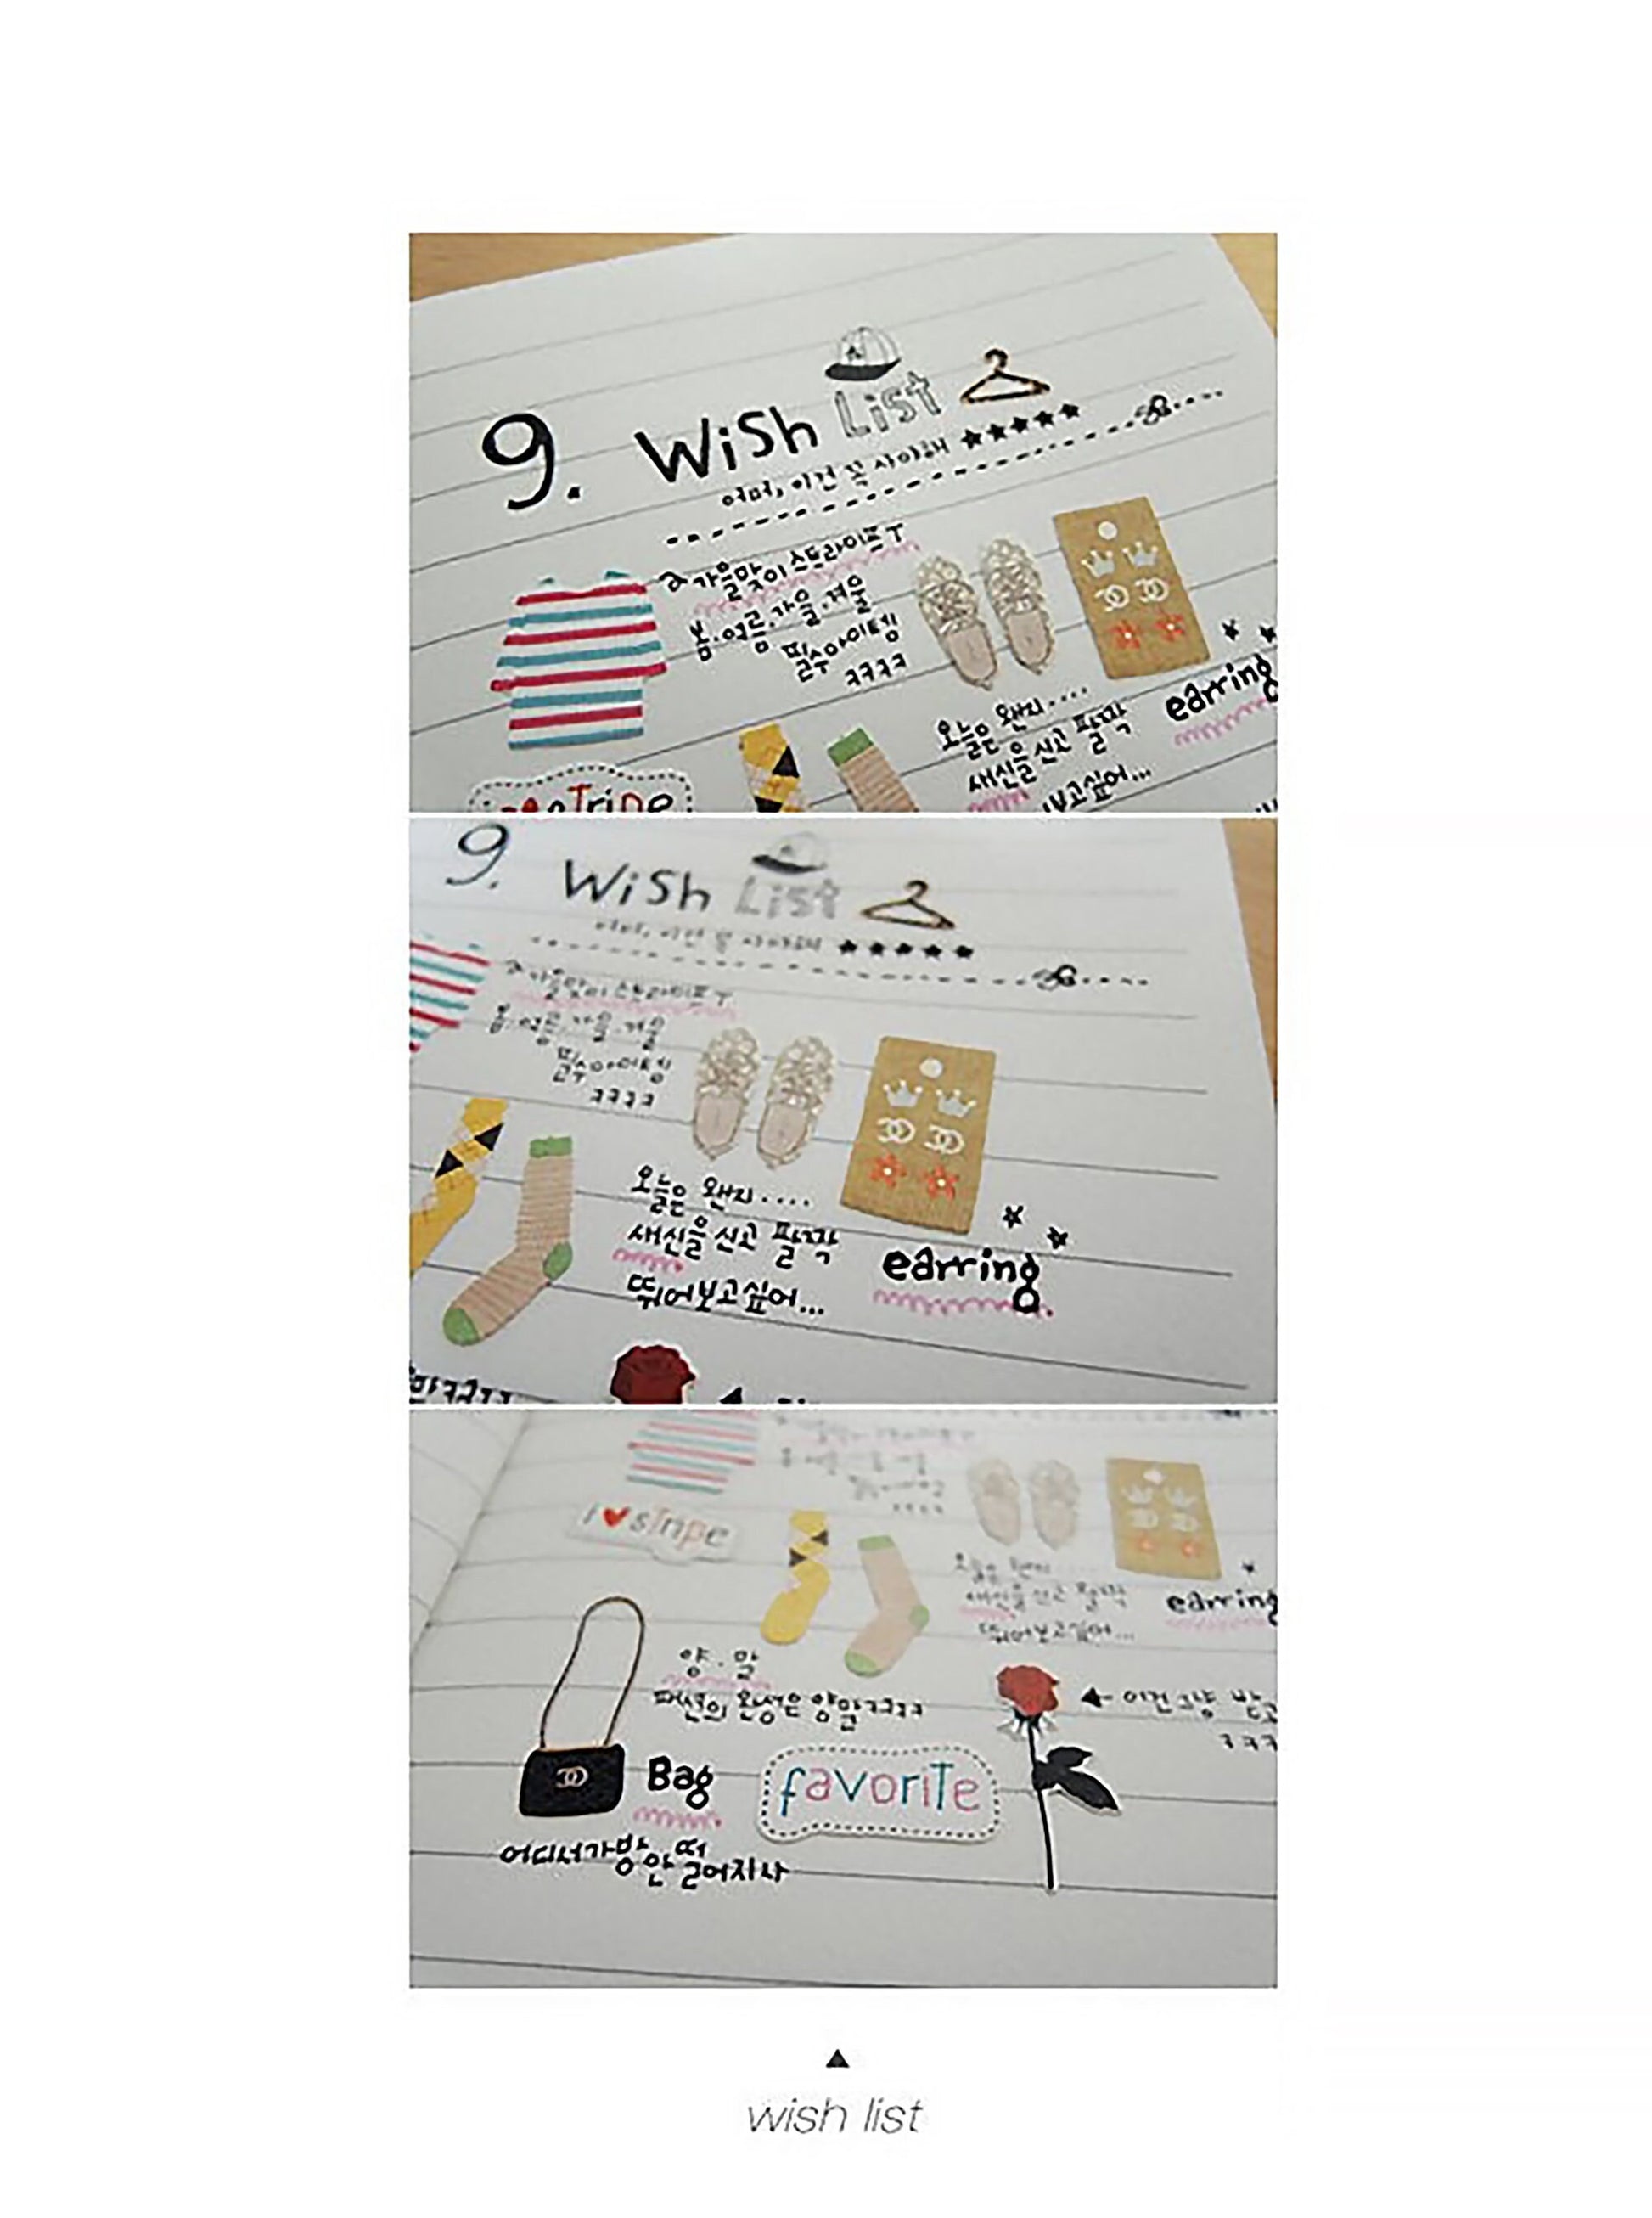 9. Wish List
어머, 이건 꼭 사야해 ★★★★★
가을맞이 스트라이프 T
봄.여름.가을.겨울
필수아이템
ㅋㅋㅋㅋ
오늘은 왠지....
새신을 신고 팔짝
보고싶어...
earring
9. Wish List
어머, 이건 꼭 사야해 ★★★★★
가을맞이 스트라이프 T
봄.여름.가을.겨울
필수아이템
ㅋㅋㅋㅋ
오늘은 왠지....
새신을 신고 팔짝
뛰어보고싶어...
earring
I ♥ stripe
오늘은 왠지....
새신을 신고 팔짝
뛰어보고싶어...
earring
양.말
패션의 완성은 양말ㅋㅋㅋㅋ
이건 그냥
ㅋㅋㅋ
Bag
favorite
어디서 가방 안 떨어지나
wish list